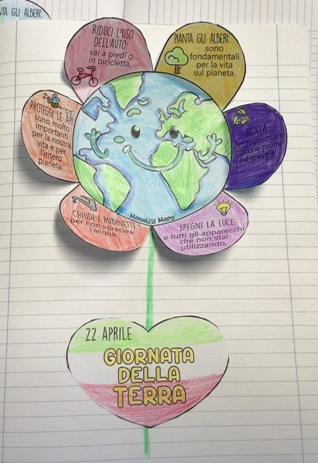 TA GLI ALBERI:
RIDUCI L'USO
DELL'AUTO:
vai a piedi o
in bicicletta.
PIANTA GLI ALBERI:
sono
fondamentali
per la vita
sul pianeta.
PROTEGGI LE API
sono molto
importanti
per la nostra
vita e per
l'intero
pianeta.
ed energie.
CHIUDI I RUBINETTI
per non sprecare
l'acqua.
SPEGNI LA LUCE
e tutti gli apparecchi
che non stai
utilizzando.
22 APRILE
GIORNATA
DELLA
TERRA